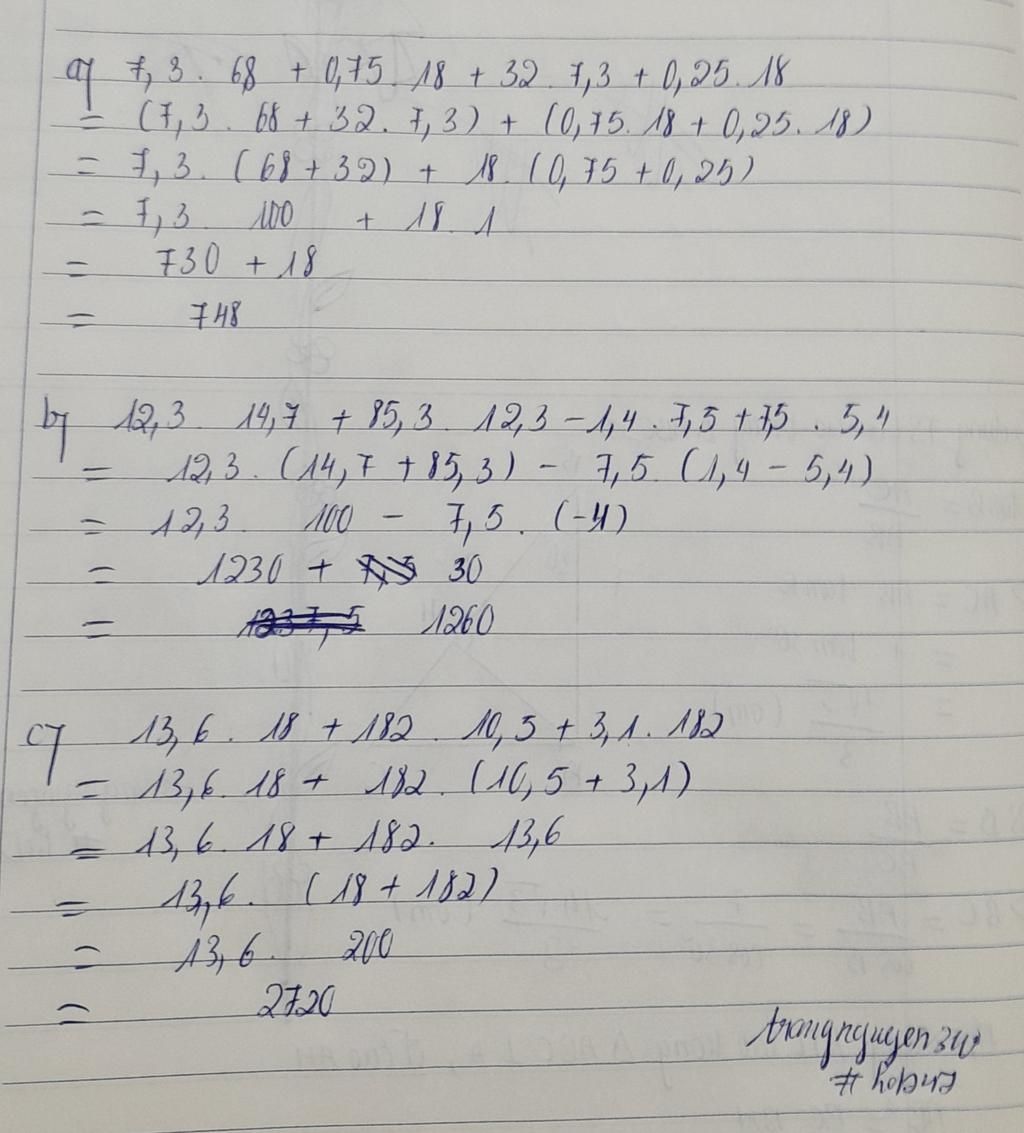 a) 7,3 . 68 + 0,75 . 18 + 32 . 7,3 + 0,25 . 18
= (7,3 . 68 + 32 . 7,3) + (0,75 . 18 + 0,25 . 18)
= 7,3 . (68 + 32) + 18 . (0,75 + 0,25)
= 7,3 . 100 + 18 . 1
= 730 + 18
= 748
b) 12,3 . 14,7 + 85,3 . 12,3 - 1,4 . 7,5 + 7,5 . 5,4
= 12,3 . (14,7 + 85,3) - 7,5 . (1,4 - 5,4)
= 12,3 . 100 - 7,5 . (-4)
= 1230 + 30
= 1260
c) 13,6 . 18 + 182 . 10,5 + 3,1 . 182
= 13,6 . 18 + 182 . (10,5 + 3,1)
= 13,6 . 18 + 182 . 13,6
= 13,6 . (18 + 182)
= 13,6 . 200
= 2720